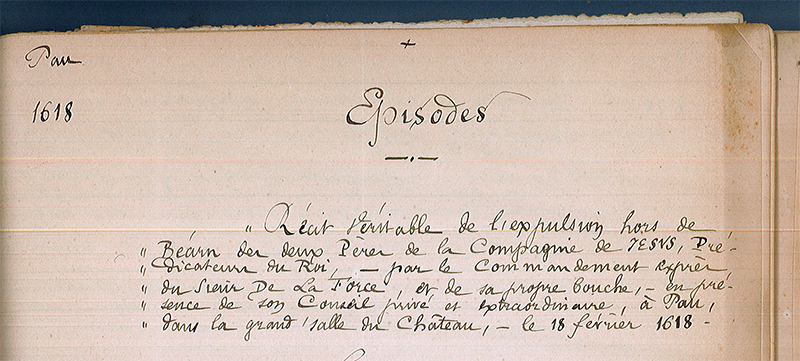 Pau
+
1618
Episodes
" Récit Véritable de l'expulsion hors de
" Béarn des deux Pères de la Compagnie de JESVS, Pré-
" dicateurs du Roi, — par le Commandement exprès
" du Sieur De La Force, et de sa propre bouche, — en pré-
" sence de son Conseil privé et extraordinaire, à Pau,
" dans la grand'salle du Château, — le 18 février 1618 -